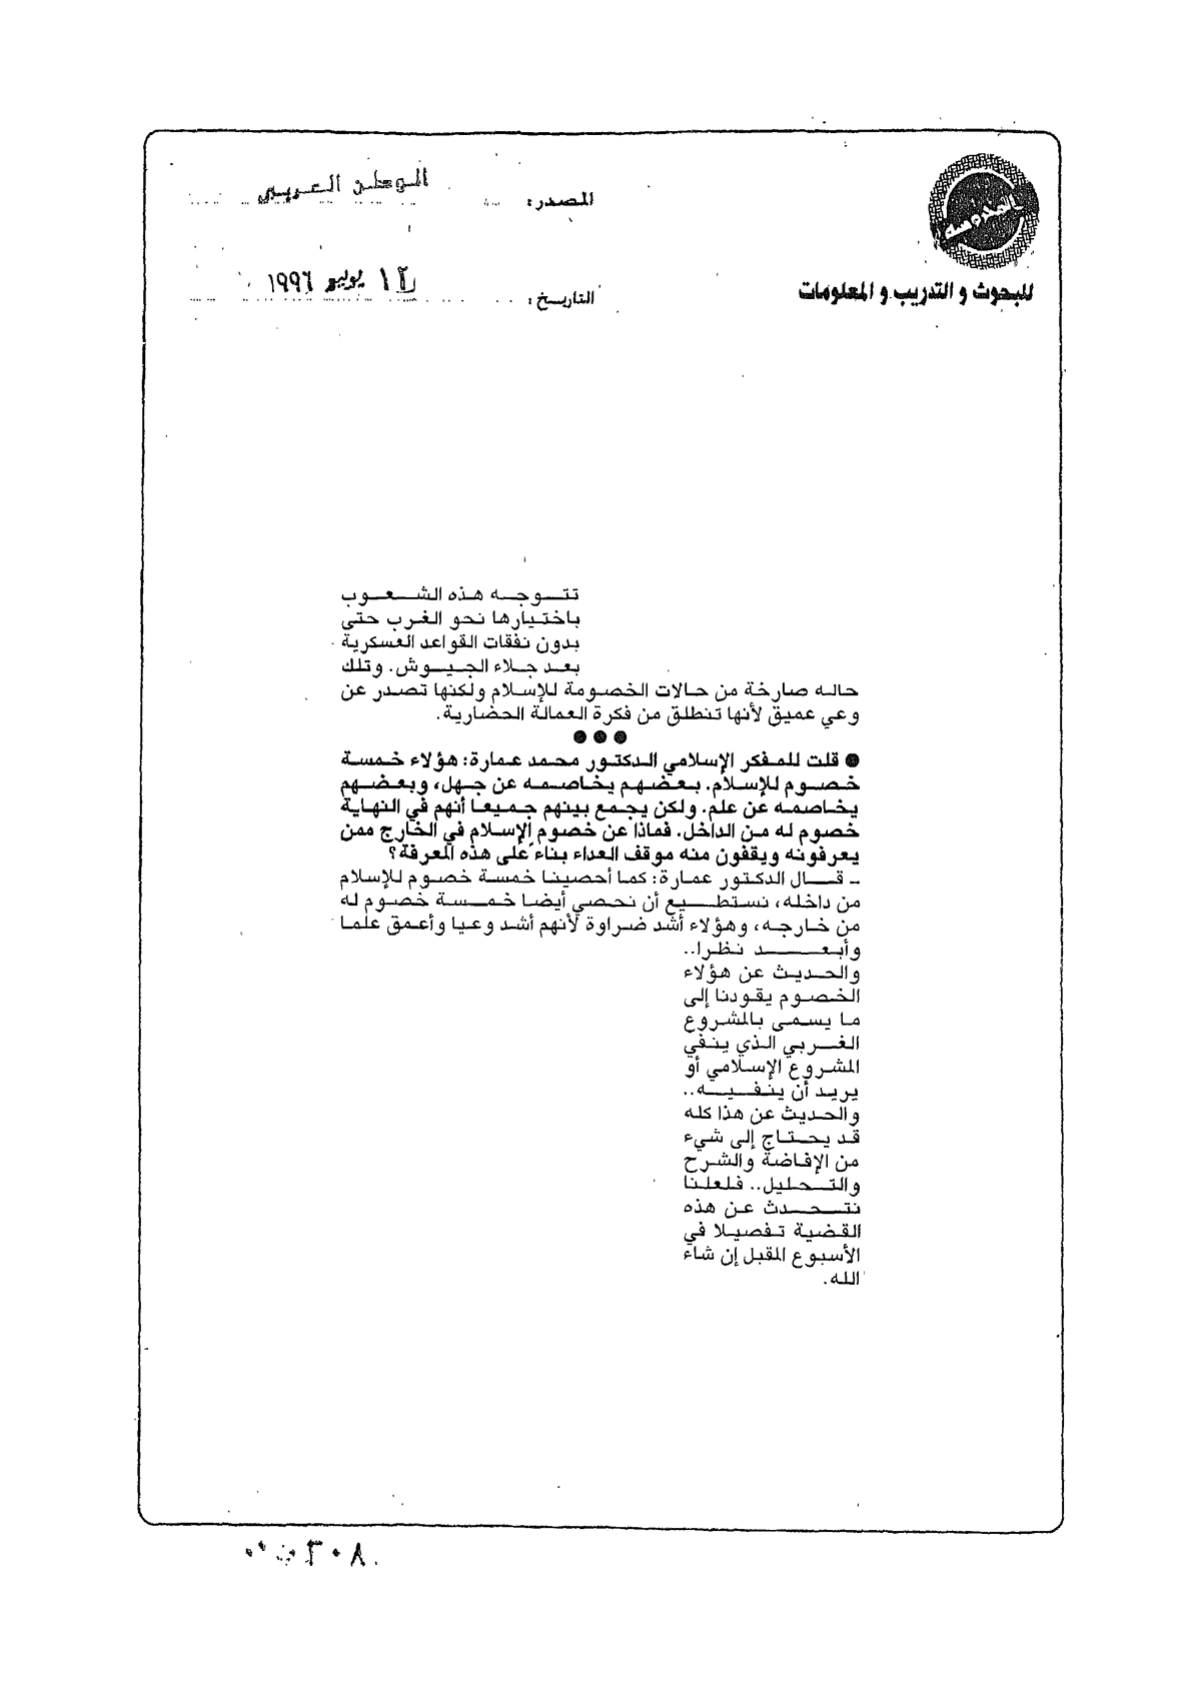 المصدر: الوطن العربي
التاريخ: ١٢ يوليو ١٩٩٦
للبحوث و التدريب و المعلومات
تتوجه هذه الشعوب
باختيارها نحو الغرب حتى
بدون نفقات القواعد العسكرية
بعد جلاء الجيوش. وتلك
حاله صارخة من حالات الخصومة للإسلام ولكنها تصدر عن
وعي عميق لأنها تنطلق من فكرة العمالة الحضارية.
●●●
● قلت للمفكر الإسلامي الدكتور محمد عمارة: هؤلاء خمسة
خصوم للإسلام. بعضهم يخاصمه عن جهل، وبعضهم
يخاصمه عن علم. ولكن يجمع بينهم جميعا أنهم في النهاية
خصوم له من الداخل. فماذا عن خصوم الإسلام في الخارج ممن
يعرفونه ويقفون منه موقف العداء بناء على هذه المعرفة؟
ـ قال الدكتور عمارة: كما أحصينا خمسة خصوم للإسلام
من داخله، نستطيع أن نحصي أيضا خمسة خصوم له
من خارجه، وهؤلاء أشد ضراوة لأنهم أشد وعيا وأعمق علما
وأبعد نظرا..
والحديث عن هؤلاء
الخصوم يقودنا إلى
ما يسمى بالمشروع
الغربي الذي ينفي
المشروع الإسلامي أو
يريد أن ينفيه..
والحديث عن هذا كله
قد يحتاج إلى شيء
من الإفاضة والشرح
والتحليل.. فلعلنا
نتحدث عن هذه
القضية تفصيلا في
الأسبوع المقبل إن شاء
الله.